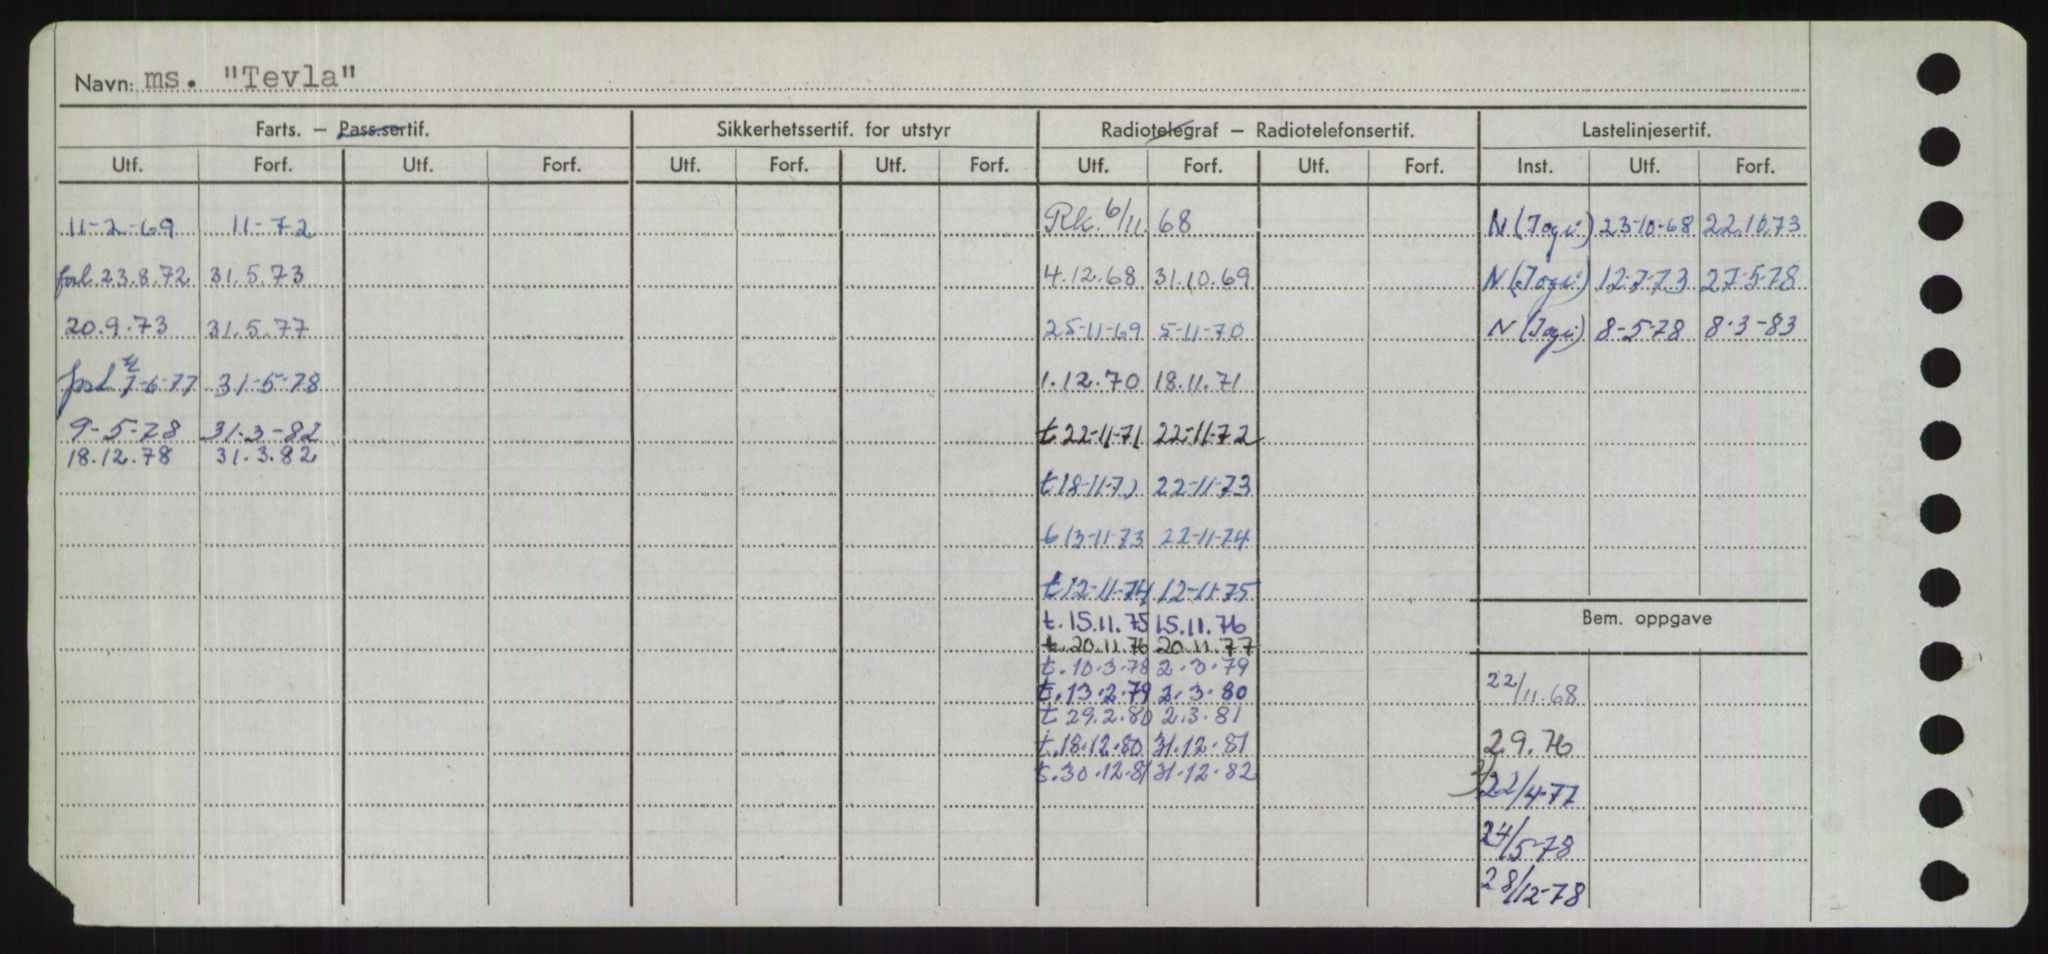 Navn: ms. "Tevla"
Farts. – Pass.sertif. Sikkerhetssertif. for utstyr Radiotelegraf – Radiotelefonsertif. Lastelinjesertif.
Utf. Forf. Utf. Forf. Utf. Forf. Utf. Forf. Utf. Forf. Utf. Forf. Inst. Utf. Forf.
11-2-69 11-72 Rk. 6/11. 68 N 23-10-68 22.10.73
23.8.72 31.5.73 4.12.68 31.10.69 N 12-7-73 27-5-78
20.9.73 31.5.77 25-11-69 5-11-70 N 8-5-78 8-3-83
7-6-77 31-5-78 1.12.70 18.11.71
9-5-78 31-3-82 t 22-11-71 22-11-72
18.12.78 31.3.82
t 18-11-7 22-11-73
t 13-11-73 22-11-74
t 12-11-74 12-11-75
Bem. oppgave
t. 15.11.75 15.11.76
t. 20.11.76 20.11.77
t. 10-3-78 2-3-79
22/11.68
t. 13-2-79 2.3.80
t 29.2.80 2.3.81
t. 18-12-80 31.12-81 2.9.76
t. 30.12.81 31.12.82
22/4-77
24/5-78
28/12-78